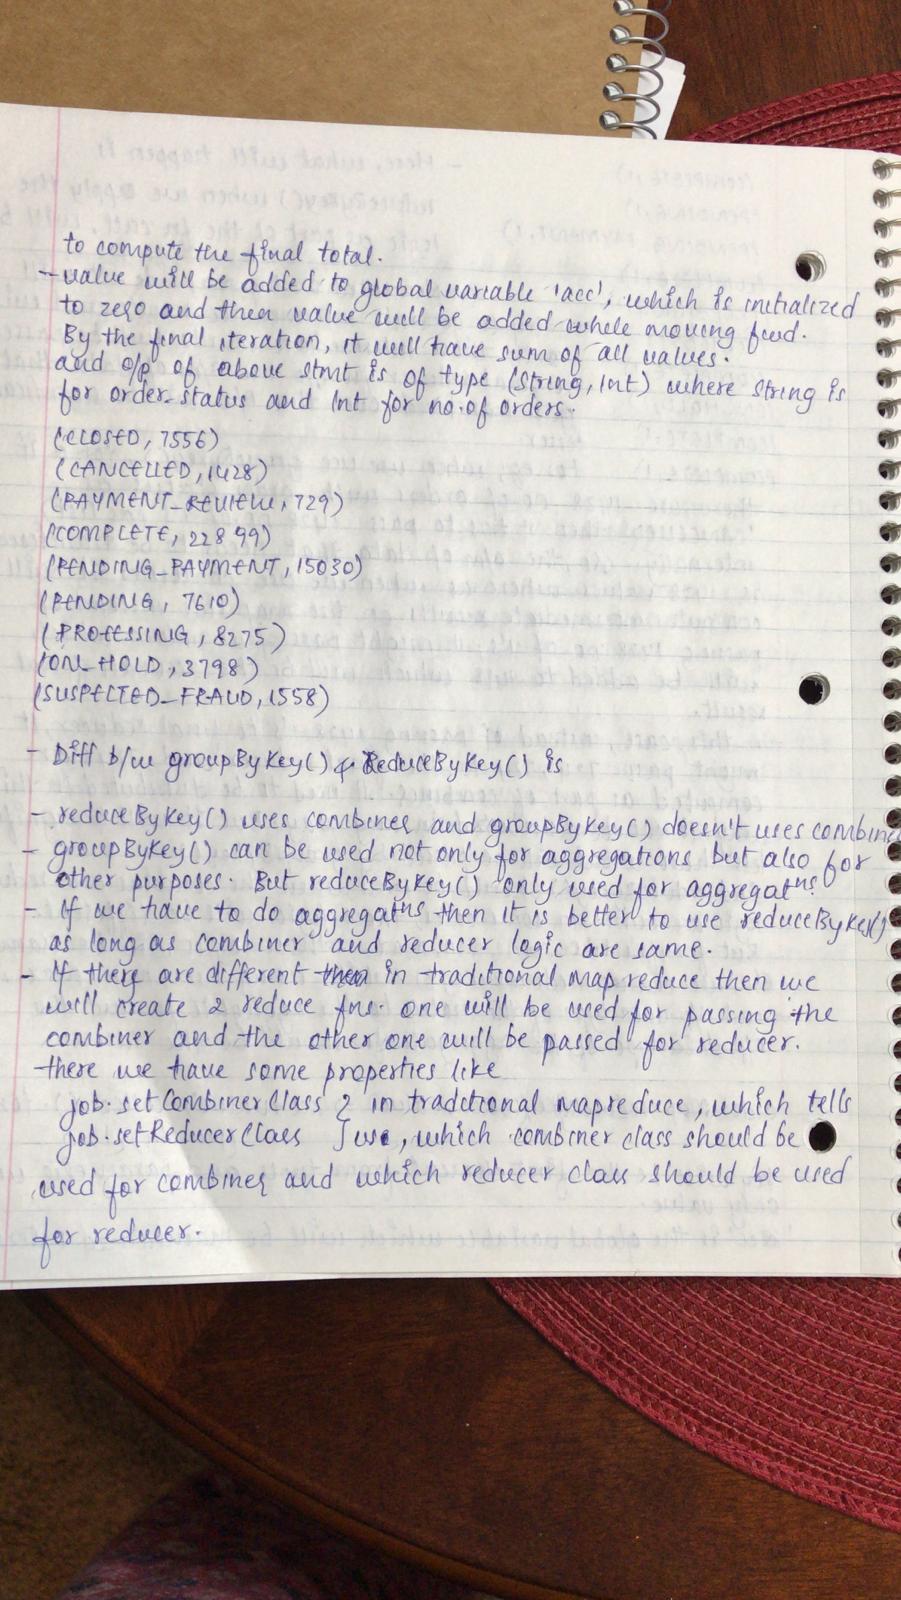 to compute the final total.
- value will be added to global variable 'acc', which is initialized
to zero and then value will be added while moving fwd.
By the final iteration, it will have sum of all values.
and o/p of above stmt is of type (String, Int) where string is
for order-status and Int for no. of orders.
(CLOSED, 7556)
(CANCELLED, 1428)
(PAYMENT_REVIEW, 729)
(COMPLETE, 22899)
(PENDING_PAYMENT, 15030)
(PENDING, 7610)
(PROCESSING, 8275)
(ON_HOLD, 3798)
(SUSPECTED_FRAUD, 1558)
- Diff b/w groupByKey() & ReduceByKey() is
- reduceByKey() uses combiner and groupByKey() doesn't uses combine
- groupByKey() can be used not only for aggregations but also for
other purposes. But reduceByKey() only used for aggregatns
- If we have to do aggregatns then it is better to use reduceByKey()
as long as combiner and reducer logic are same.
- If there are different then in traditional map reduce then we
will create 2 reduce fns. one will be used for passing the
combiner and the other one will be passed for reducer.
there we have some properties like
job.setCombinerClass } in traditional mapreduce, which tells
job.setReducerClass } use, which combiner class should be
used for combiner and which reducer class should be used
for reducer.